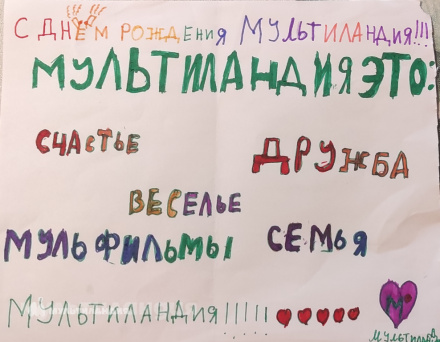 С ДНЁМ РОЖДЕНИЯ МУЛЬТИЛАНДИЯ!!!
МУЛЬТИЛАНДИЯ ЭТО:
СЧАСТЬЕ
ДРУЖБА
ВЕСЕЛЬЕ
МУЛЬФИЛЬМЫ СЕМЬЯ
МУЛЬТИЛАНДИЯ!!!!!
М